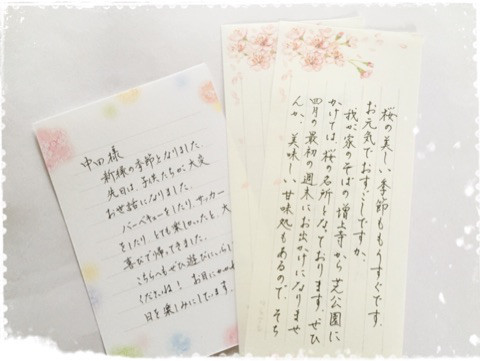 中田様
新緑の季節となりました。
先日は、子供たちが、大変
お世話になりました。
バーベキューをしたり、サッカー
をしたり、とても楽しかったと、大
喜びで帰ってきました。
こちらへもぜひ遊びにいらして
くださいね! お目にかかれる
日を楽しみにしています。
桜の美しい季節ももうすぐです。
お元気でおすごしですか。
我が家のそばの増上寺から芝公園に
かけては桜の名所となっております。ぜひ
四月の最初の週末にお出かけになりませ
んか。美味しい甘味処もあるので、そち